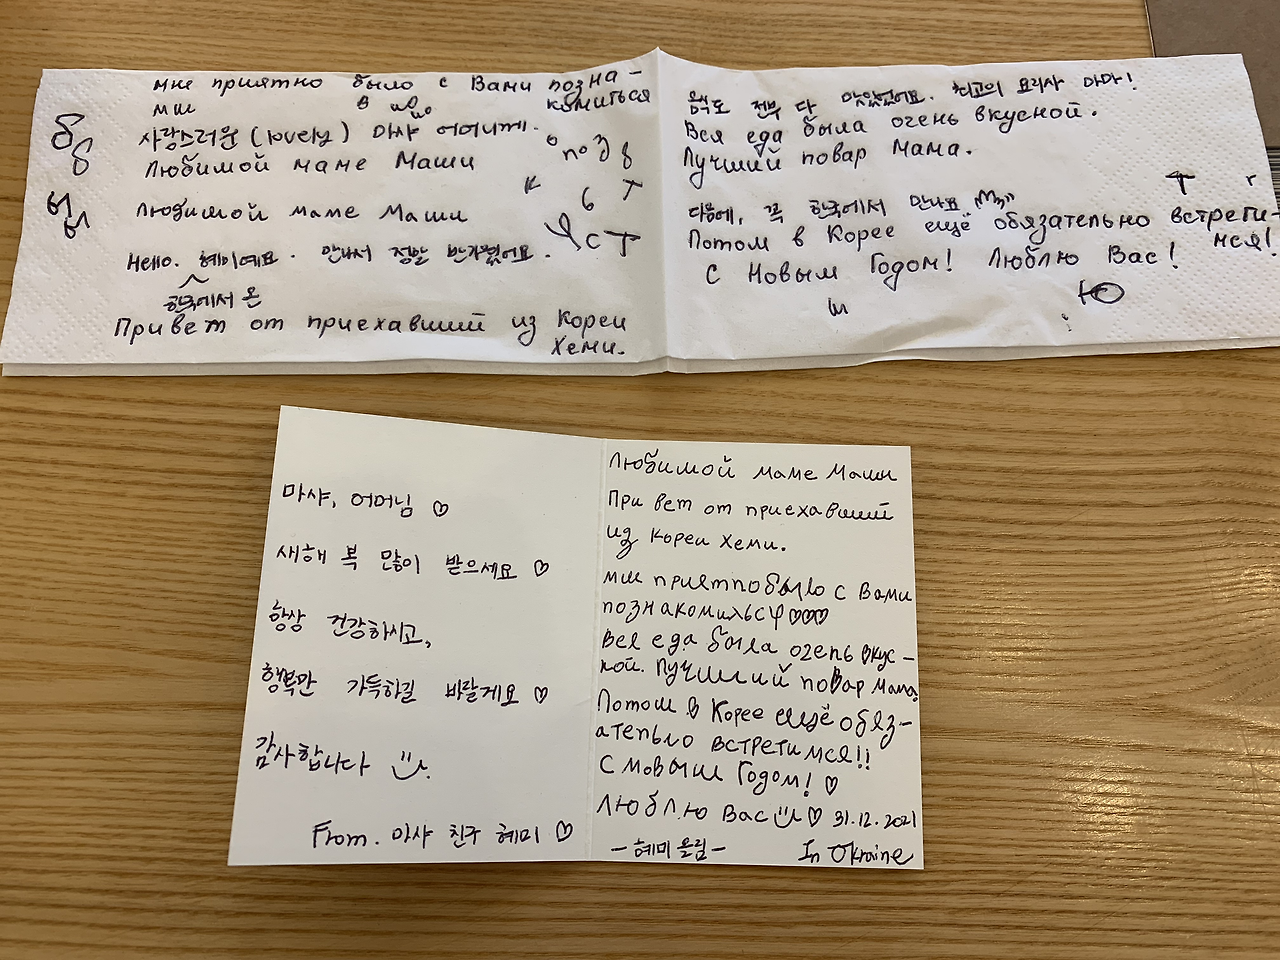 мне приятно было с Вами позна-
комиться
사랑스러운 (lovely) 마샤 어머니께.
Любимой маме Маши
Любимой маме Маши
Hello. 혜미예요. 만나서 정말 반가웠어요.
한국에서 온
Привет от приехавший из Кореи
Хеми.
음식도 전부 다 맛있었어요. 최고의 요리사 마마!
Вся еда была очень вкусной.
Лучший повар мама.
다음에, 꼭 한국에서 만나요
Потом в Корее ещё обязательно встрети-
мся!
С Новым Годом! Люблю Вас!
Ю
마샤, 어머님 ♡
새해 복 많이 받으세요 ♡
항상 건강하시고,
행복만 가득하길 바랄게요 ♡
감사합니다
From. 마샤 친구 혜미 ♡
Любимой маме Маши
Привет от приехавший
из Кореи Хеми.
с Вами
♡♡♡
Вся еда была очень вкус-
ной. Лучший повар мама.
Потом в Корее ещё обяз-
встретимся!!
Годом! ♡
Люблю Вас ♡ 31.12.2021
-혜미 올림-
In Ukraine